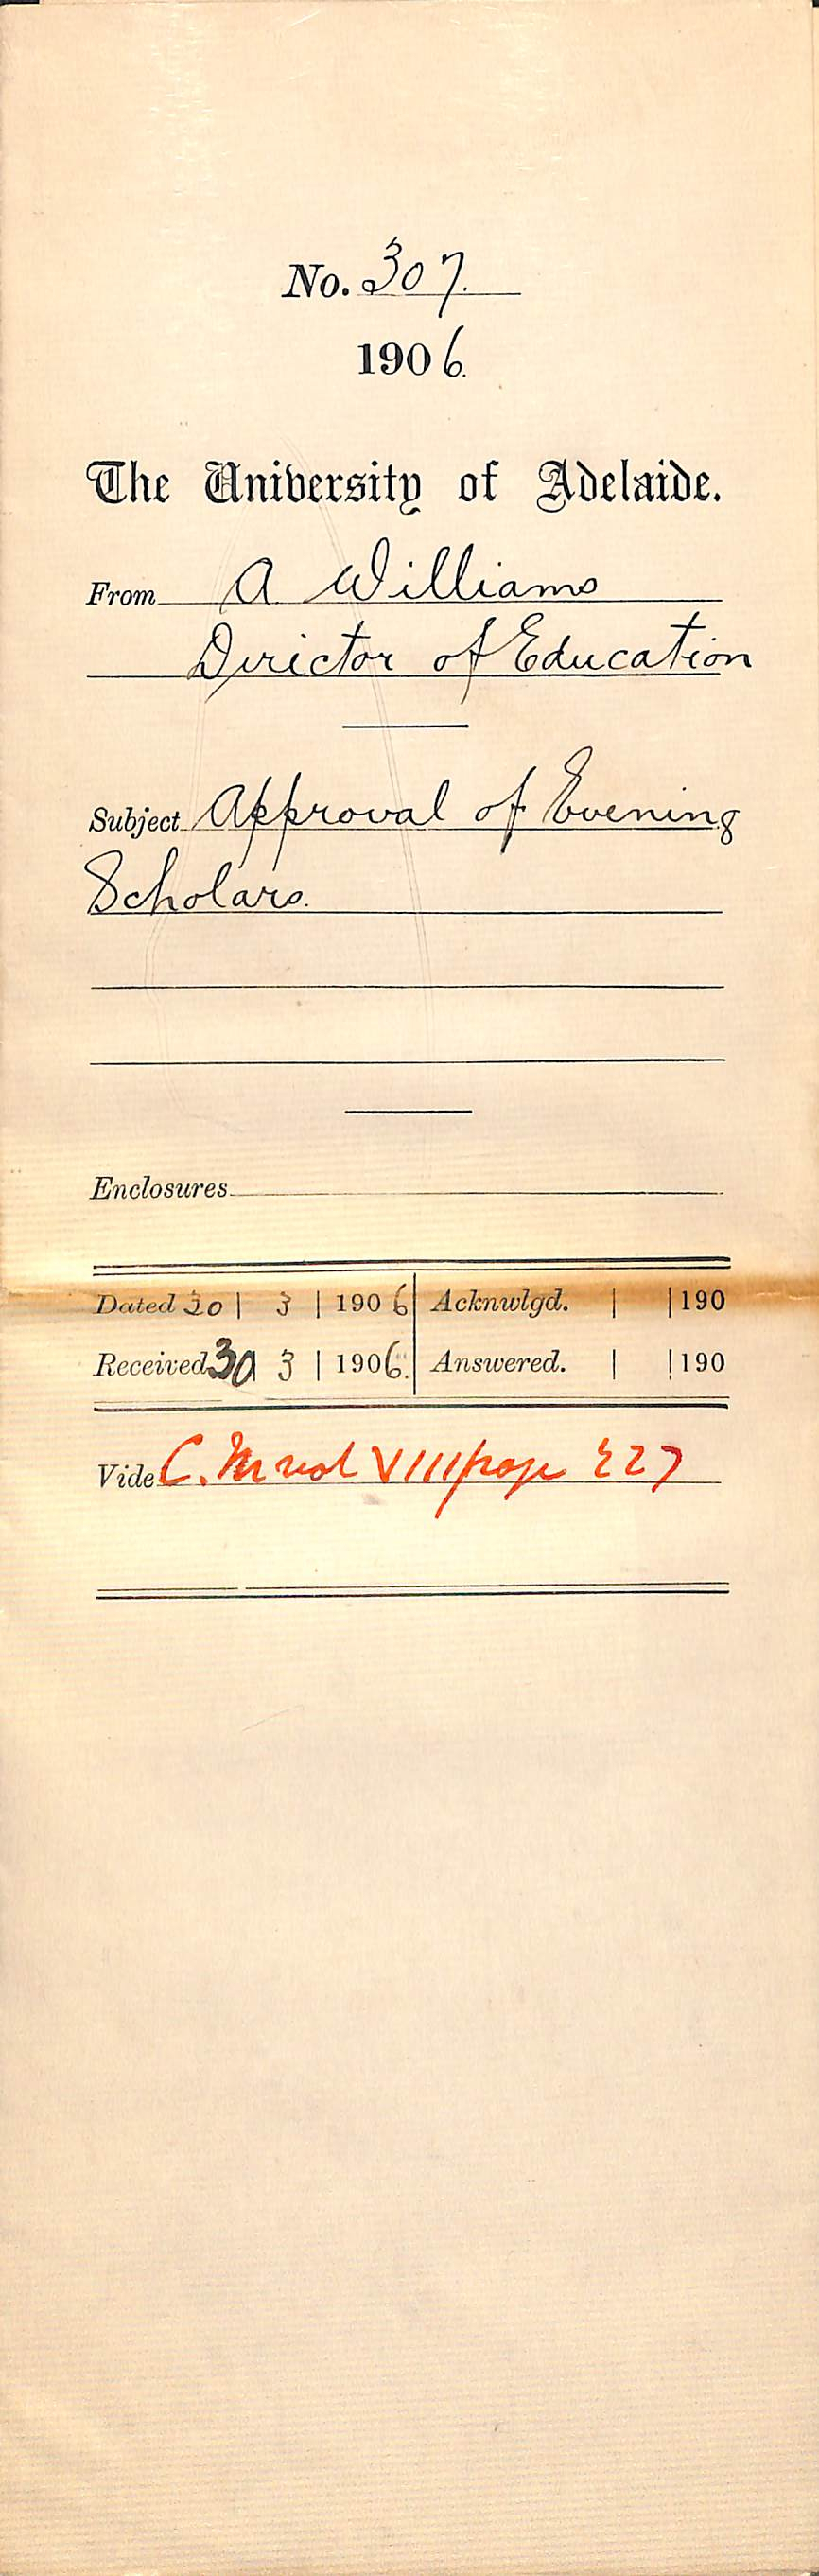 No. 307.
1906.
The University of Adelaide.
From A Williams
Director of Education
Subject Approval of Evening
Scholars.
Enclosures
Dated 30 | 3 | 1906 Acknwlgd. | | 190
Received 30 3 | 1906. Answered. | | 190
Vide C. M vol VIII page 227